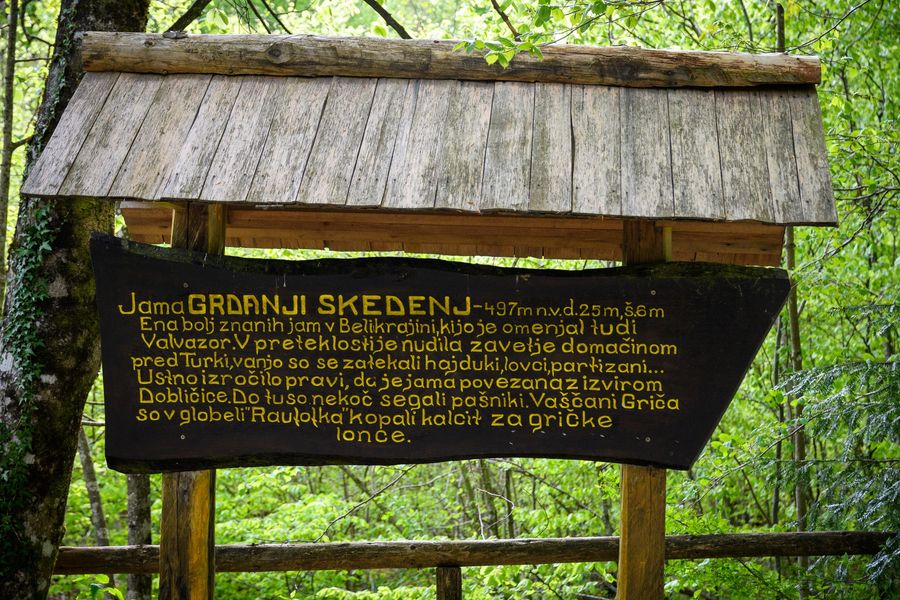 Jama GRDANJI SKEDENJ-497m n.v.d.25m,š.6m
Ena bolj znanih jam v Belikrajini,kijo je omenjal tudi
Valvazor.V preteklosti je nudila zavetje domačinom
pred Turki,vanjo so se zatekali hajduki,lovci,partizani...
Ustno izročilo pravi, da je jama povezana z izvirom
Dobličice. Do tu so nekoč segali pašniki. Vaščani Griča
so v globeli kopali kalcit za gričke
lonce.